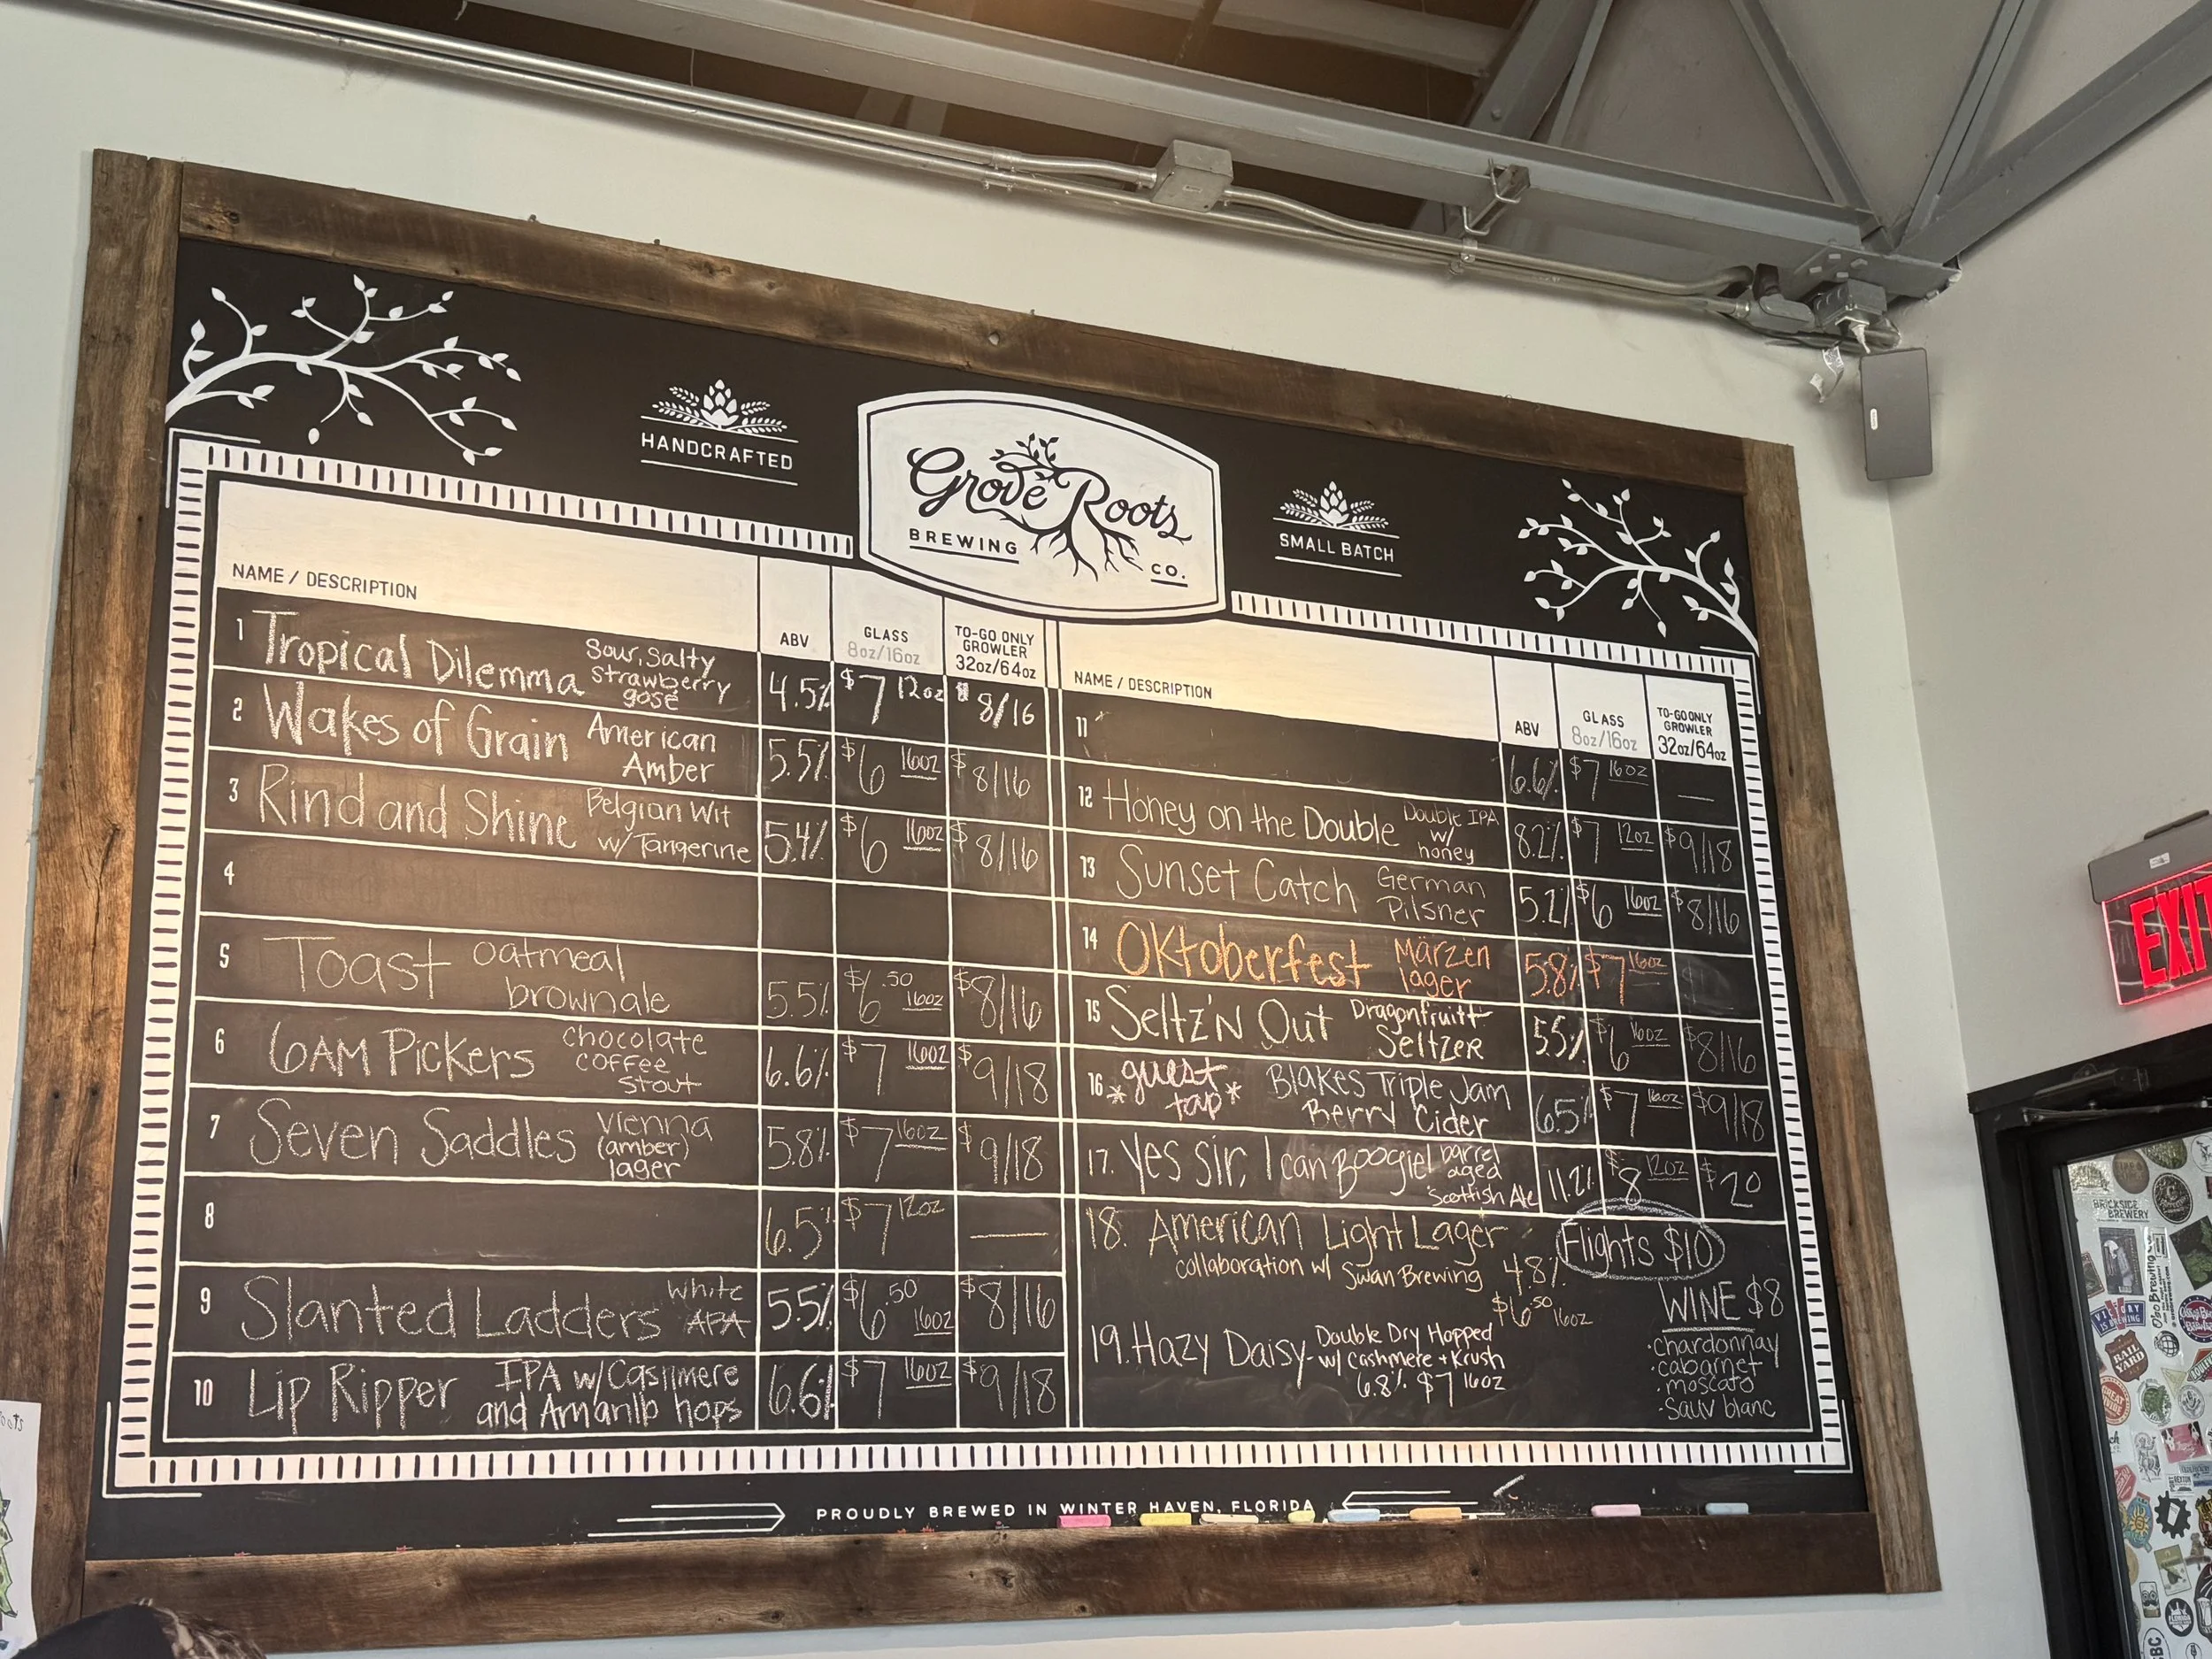 HANDCRAFTED
Grove Roots
BREWING CO.
SMALL BATCH
NAME / DESCRIPTION ABV GLASS 8oz/16oz TO-GO ONLY GROWLER 32oz/64oz
1 Tropical Dilemma Sour, Salty strawberry gose 4.5% $7 12oz $8/16
2 Wakes of Grain American Amber 5.5% $6 16oz $8/16
3 Rind and Shine Belgian Wit w/ Tangerine 5.4% $6 16oz $8/16
4
5 Toast oatmeal brown ale 5.5% $6.50 16oz $8/16
6 6AM Pickers chocolate coffee stout 6.6% $7 16oz $9/18
7 Seven Saddles Vienna (amber) lager 5.8% $7 16oz $9/18
8 6.5% $7 12oz —
9 Slanted Ladders White APA 5.5% $6.50 16oz $8/16
10 Lip Ripper IPA w/ Cashmere and Amarillo hops 6.6% $7 16oz $9/18
NAME / DESCRIPTION ABV GLASS 8oz/16oz TO-GO ONLY GROWLER 32oz/64oz
11 6.6% $7 16oz —
12 Honey on the Double Double IPA w/ honey 8.2% $7 12oz $9/18
13 Sunset Catch German Pilsner 5.2% $6 16oz $8/16
14 Oktoberfest Märzen lager 5.8% $7 16oz
15 Seltz'N Out Dragonfruit Seltzer 5.5% $6 16oz $8/16
16 *guest tap* Blakes Triple Jam Berry Cider 6.5% $7 16oz $9/18
17. Yes Sir, I can Boogie! barrel aged Scottish Ale 11.2% $8 12oz $20
18. American Light Lager
collaboration w/ Swan Brewing 4.8%
$6.50 16oz
19. Hazy Daisy- Double Dry Hopped
w/ Cashmere + Krush
6.8% $7 16oz
Flights $10
WINE $8
·chardonnay
·cabarnet
·moscato
·Sauv blanc
PROUDLY BREWED IN WINTER HAVEN, FLORIDA
EXIT
BRICKSIDE BREWERY
RAIL YARD